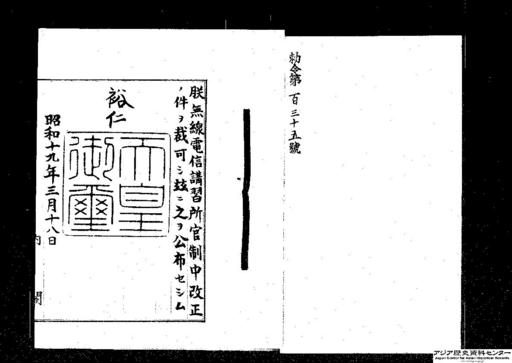 勅令第百三十五號
朕無線電信講習所官制中改正
ノ件ヲ裁可シ玆ニ之ヲ公布セシム
裕仁
天皇御璽
昭和十九年三月十八日
内閣
アジア歴史資料センター
Japan Center for Asian Historical Records